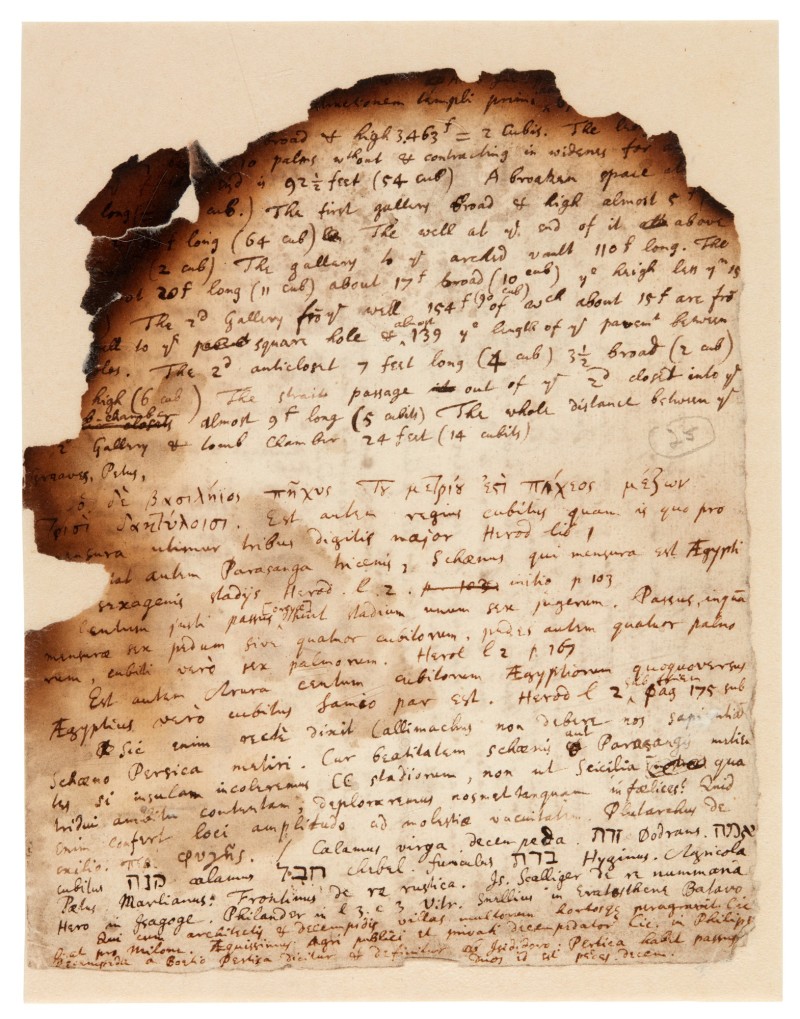 functionem templi prim
broad & high 3.463f = 2 Cubits. The
palms without & contracting in widenes for
end is 92½ feet (54 cub) A broaken space
long cub.) The first gallery broad & high almost 5
long (64 cub) The well at ye. end of it above
(2 cub) The gallery to ye arched vault 110f long. The
20f long (11 cub) about 17f broad (10 cub) ye heigh less yn 15
) The 2d Gallery frō ye well 154f (90 cub) of wch about 15f are frō
to ye square hole & almost 139 ye length of ye pavemt between
. The 2d anticloset 7 feet long (4 cub) 3½ broad (2 cub)
high (6 cub) The straite passage out of ye 2d closet into ye
b-chamber almost 9f long (5 cubits) The whole distance between ye
2 Gallery & tomb Chamber 24 feet (14 cubits)
25
Greaves, Petus,
δὲ βασιλήϊος πῆχυς τοῦ μετρίου ἐστὶ πήχεος μέζων
τρισὶ δακτύλοισι. Est autem regius cubitus quam is quo pro
mensura utimur tribus digitis major Herod lib 1
autem Parasanga tricenis, Schænus qui mensura est Ægypti
sexagenis stadijs Herod. l. 2. initio p 103
Centum justi passus sunt stadium unum sex jugerum. Passus, inquā
mensuræ sex pedum sive quatuor cubitorum, pedes autem quatuor palmo
rum, cubiti verò sex palmorum. Herod l 2 p 167
Est autem Arura centum cubitorum Ægyptiorum quoquoversus
Ægyptius verò cubitus Samio par est. Herod l 2, pag 175 sub
Sic enim rectè dixit Callimachus non debere nos sapientiā
Schæno Persica metiri. Cur beatitatem schænis aut Parasangis metien
tes si insulam incoleremus CC stadiorum, non ut Seicilia qua
tridui ambitu contentam, deploraremus nosmet tanquam infælices? Quid
enim confert loci amplitudo ad molestiæ vacuitatem. Plutarchus de
exilio. φυγῆς. / Calamus virga decempeda. זרת Dodrans. אמה
cubitus קנה calamus חבל chebel. funiculus ברה Hyginus. Agricola
Pætus Martlianus. Frontinus de re rustica. Js. Scalliger de re nummaria
Hero in Isagoge. Philander in l 3. c 3 Vitr. Snellius in Eratosthene Batavo
Qui cum architectis & decempedis villas multorum hortosqꝫ peragravit. Cic
pro Milone. Æquissimus Agri publici et privati decempedator Cic. in Philipp
Decempeda a Boetio Pertica dicitur et definitur ab Isidoro. Pertica habet passus
duos id est pedes decem.